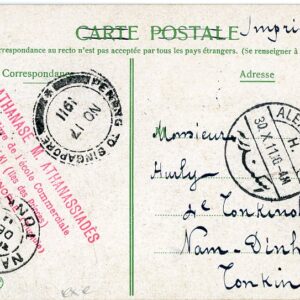 CARTE POSTALE
Imprimé
Correspondance au recto n'est pas acceptée par tous les pays étrangers. (Se renseigner à
Correspondance
Adresse
PENANG TO SINGAPORE
NO 17
1911
ATHANASE M. ATHANASSIADÈS
de l'école Commerciale
(Iles des Princes)
ALE
30.X.11.16-AM
H.
Monsieur
Hurly
de Tonkinoi
Nam-Dinh
Tonkin
NA
DE